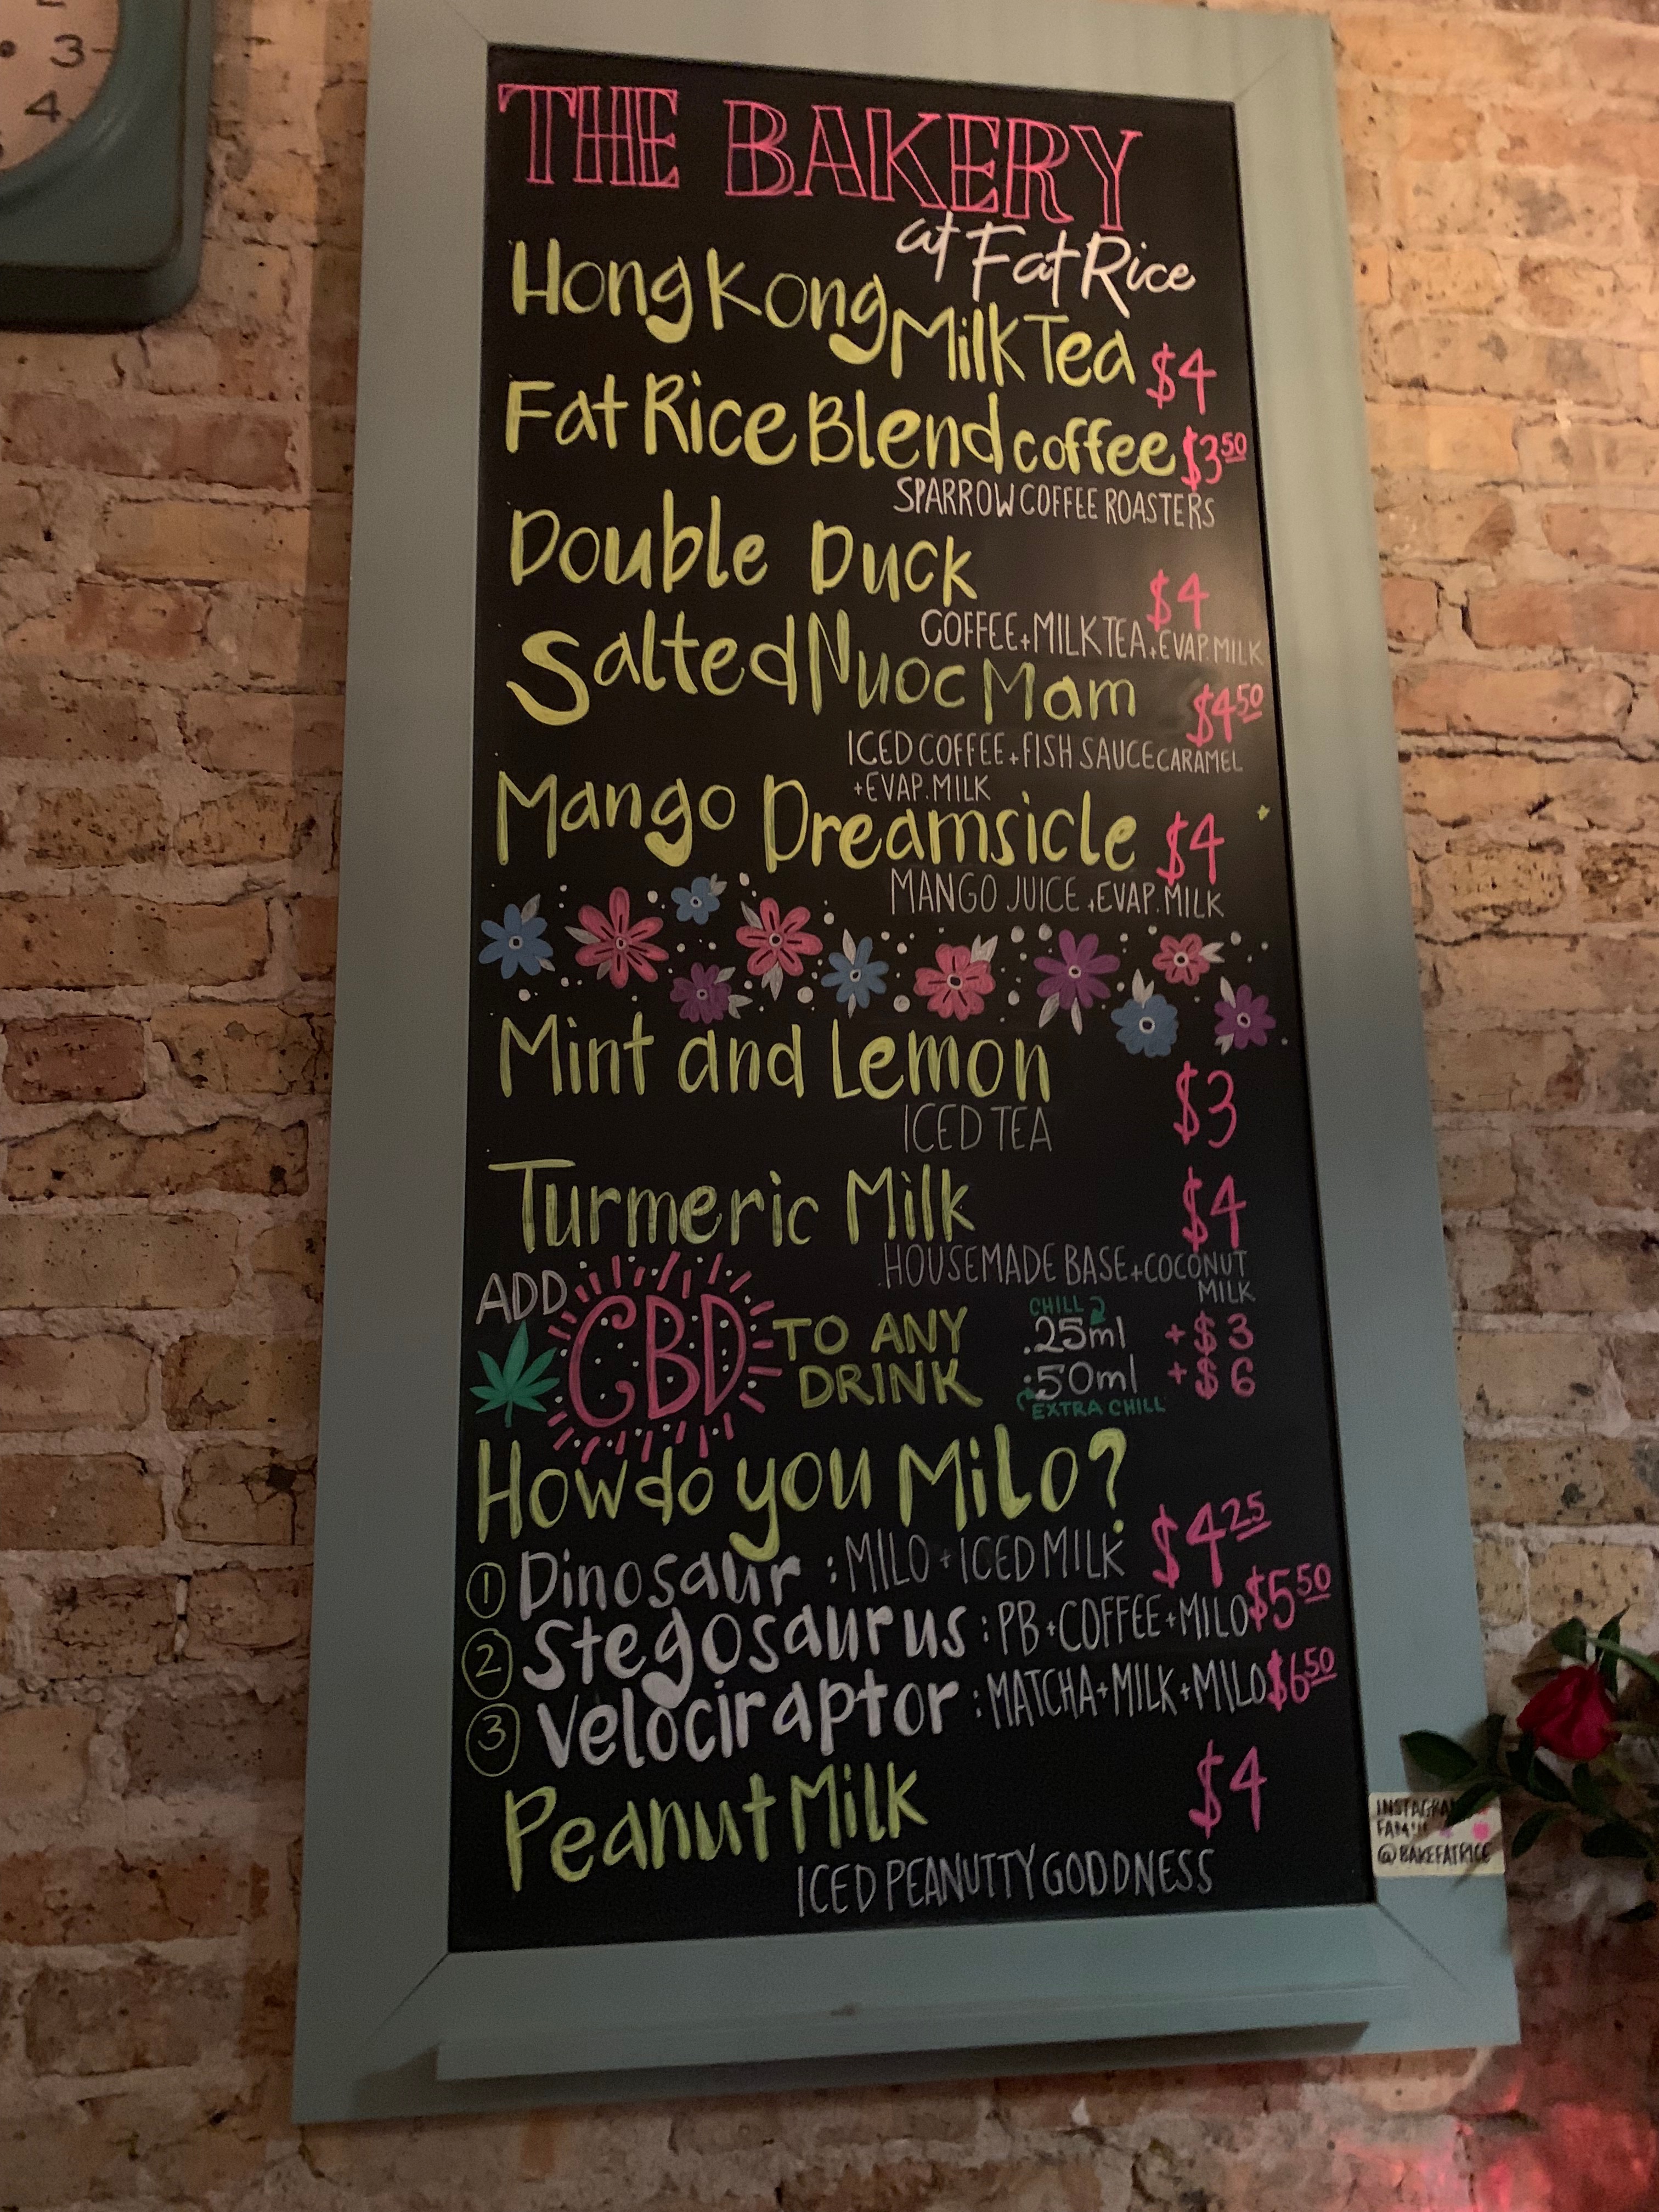 3
4
THE BAKERY
at Fat Rice
Hong Kong Milk Tea $4
Fat Rice Blend coffee $3 50
SPARROW COFFEE ROASTERS
Double Duck $4
COFFEE + MILK TEA + EVAP. MILK
Salted Nuoc Mam $4 50
ICED COFFEE + FISH SAUCE CARAMEL
+ EVAP. MILK
Mango Dreamsicle $4
MANGO JUICE + EVAP. MILK
Mint and Lemon $3
ICED TEA
Turmeric Milk $4
HOUSEMADE BASE + COCONUT
MILK
ADD CBD TO ANY
DRINK
CHILL
.25ml + $3
.50ml + $6
EXTRA CHILL
How do you MiLo?
1 Dinosaur : MILO + ICED MILK $4 25
2 Stegosaurus : PB + COFFEE + MILO $5 50
3 Velociraptor : MATCHA + MILK + MILO $6 50
Peanut Milk $4
ICED PEANUTTY GOODNESS
FAM!!!
@BAKEFATRICE